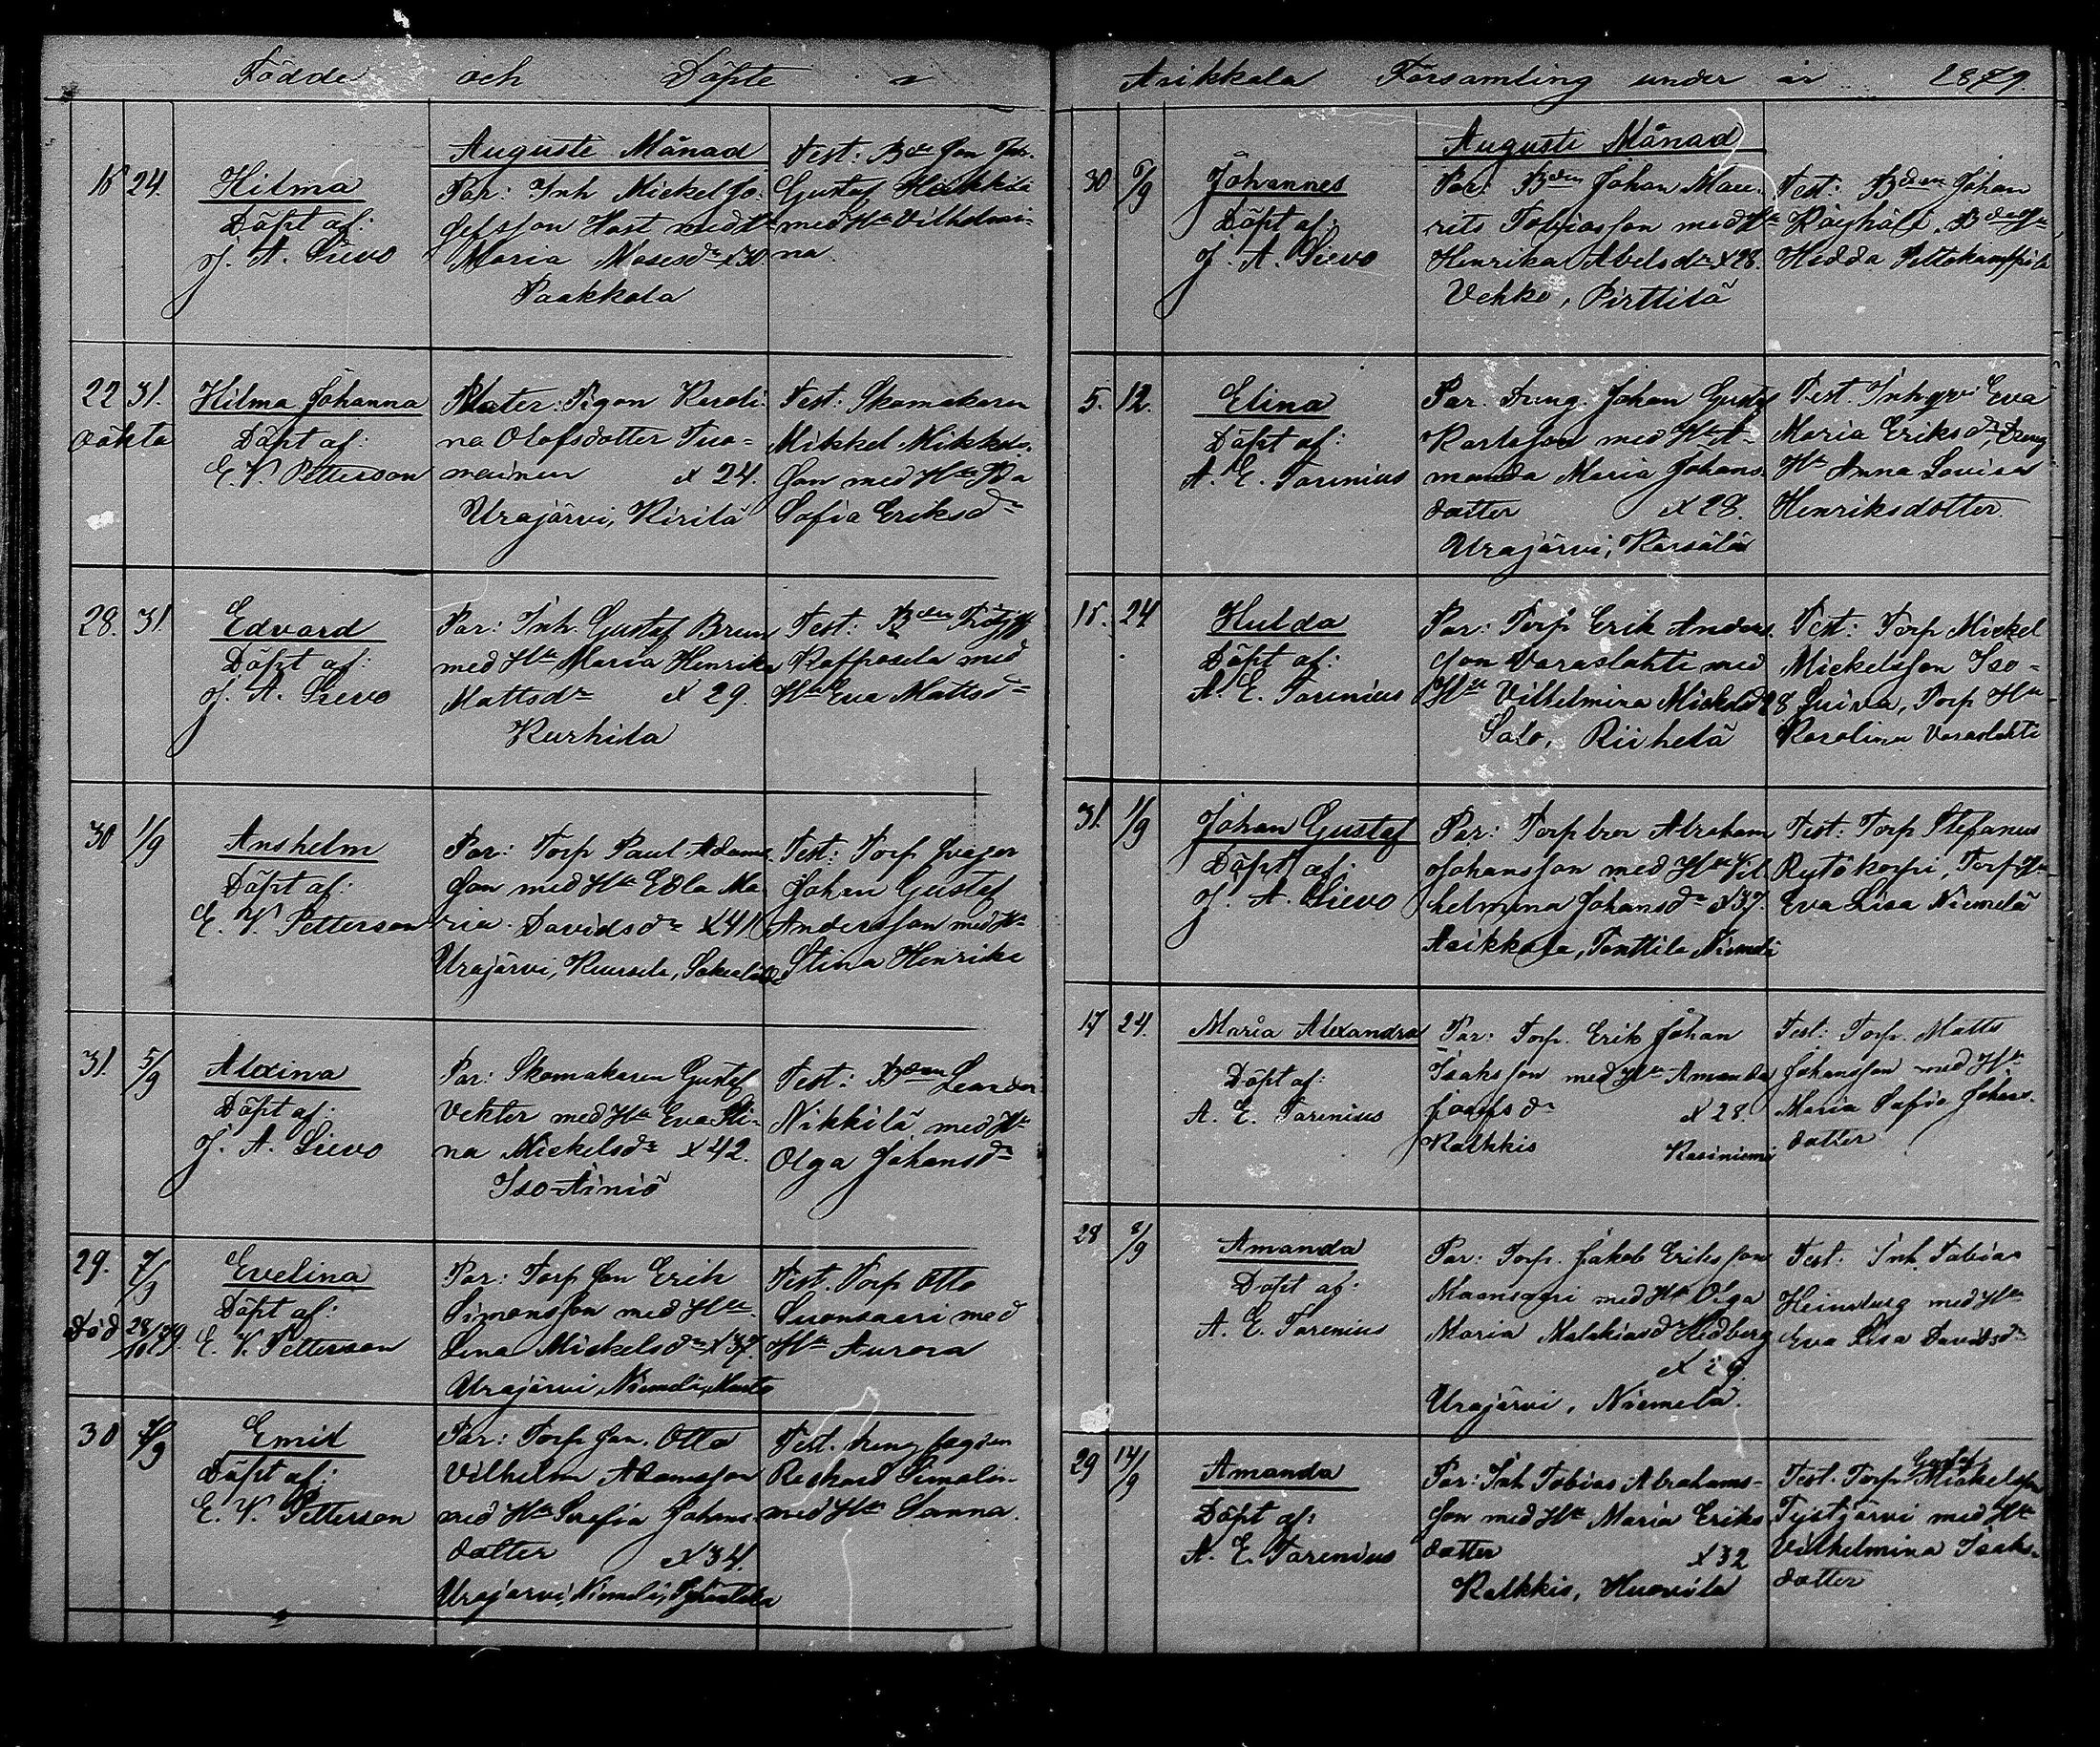 Födde och Döpte i
Augusti Månad
18 24. Hilma
Döpt af:
J. A. Lievo
Par: Inh Mickel Jo-
sefsson Host med H
Maria Mosesdr x30
Paakkola
Test: Bden
Gustaf Heikkilä
med Hu Vilhelmi-
na.
22 31. Hilma Johanna
oäkta
Döpt af:
E. V. Petterson
Mater: Pigan Karoli-
na Olofsdotter Tuo-
mainen x 24.
Urajärvi, Kirilä
Test: Skomakaren
Mikkel Mikkels-
son med Hu
Sofia Eriksdr
28. 31. Edvard
Döpt af:
J. A. Lievo
Par: Inh. Gustaf Brun
med Hu Maria Henrika
Mattsdr x 29.
Kurhila
Test: Bden
med
Hu Eva Mattsdr
30 1/9 Anshelm
Döpt af:
E. V. Petterson
Par: Torp Paul Adams-
son med Hu Edla Ma-
ria Davidsdr x41
Urajärvi, Kuusela,
Test: Torp svåger
Johan Gustaf
Andersson med Hu
Stina Henrika
31. 5/9 Alexina
Döpt af:
J. A. Lievo
Par: Skomakaren Gustaf
Vekter med Hu Eva Sti-
na Mickelsdr x42.
Iso-Äiniö
Test: Bden Leander
Nikkilä med Hu
Olga Johansdr
29. 7/9 Evelina
Död 28/10 79.
Döpt af:
E. V. Petterson
Par: Torp son Erik
Simonsson med Hu
Lena Mickelsdr x37.
Urajärvi, Niemelä,
Test. Torp Otto
Suonsaari med
Hu Aurora
30 7/9 Emil
Döpt af:
E. V. Petterson
Par: Torp son. Otto
Vilhelm Adamsson
med Hu Serafia Johans-
dotter x34.
Urajärvi, Niemelä,
Test. dreng
Rickard
med Hu Sanna.
Asikkala Församling under år 1879.
Augusti Månad
30 6/9 Johannes
Döpt af:
J. A. Lievo
Par: Bden Johan Mau-
rits Tobiasson med Hu
Henrika Abelsdr x28.
Vehko, Pirttilä
Test: Bden Johan
Hedda
5. 12. Elina
Döpt af:
A. E. Torenius
Par. Dreng Johan Gustaf
Karlsson med Hu A-
manda Maria Johans-
dotter x28.
Urajärvi, Kärsälä
Test. Inhgu Eva
Maria Eriksdr, Dreng
Hu Anna Lovisa
Henriksdotter.
18. 24 Hulda
Döpt af:
A. E. Torenius
Par: Torp Erik Anders-
son Varaslahti med
Hu Vilhelmina Mickelsdr 28
Salo, Riihelä
Test: Torp Mickel
Mickelsson Iso-
Torp Hu
Karolina Varaslahti
31. 1/9 Johan Gustaf
Döpt af:
J. A. Lievo
Par: Torpbror Abraham
Johansson med Hu Vil-
helmina Johansdr x37.
Asikkala, Tonttila Niemelä
Test: Torp Stefanus
Rytökorpi, Torp Hu
Eva Lisa Niemelä
17 24. Maria Alexandra
Döpt af:
A. E. Torenius
Par: Torp. Erik Johan
Isaksson med Hu Amanda
Josefsdr x28.
Kalkkis Kasiniemi
Test: Torp. Matts
Johansson med Hu
Maria Sofia Johans-
dotter
28 8/9 Amanda
Döpt af:
A. E. Torenius
Par: Torp. Jakob Eriksson
Maansaari med Hu Olga
Maria Malakiasdr Hedberg
x 29.
Urajärvi, Niemelä.
Test: Inh. Tobias
Heinberg med Hu
Eva Lisa Davidsdr
29 14/9 Amanda
Döpt af:
A. E. Torenius
Par: Inh Tobias Abrahams-
son med Hu Maria Eriks-
dotter x32
Kalkkis, Huovila
Test. Torp Gustaf Mickelsson
Tejstjärvi med Hu
Vilhelmina Isaks-
dotter